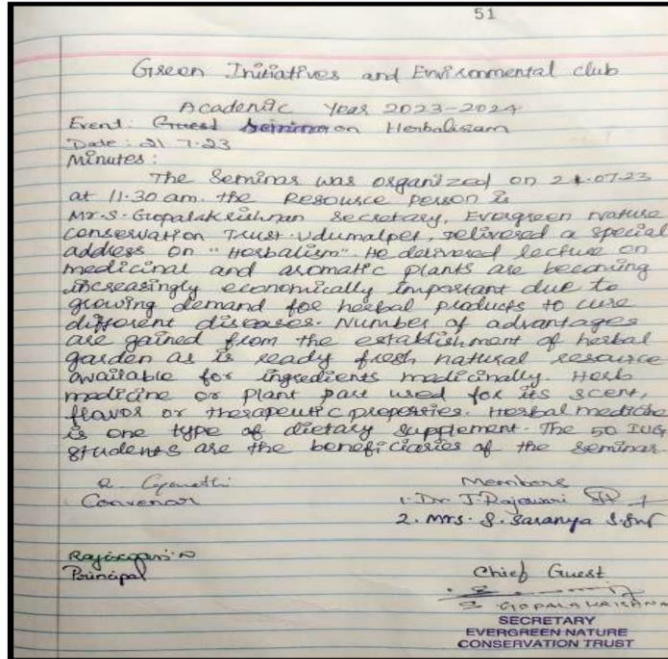 51
Green Initiatives and Environmental club
Academic Year 2023-2024
Event: Guest Seminar on Herbalisam
Date: 21.7.23
Minutes:
The Seminar was organized on 21.07.23
at 11.30 am. the Resource person is
Mr.S. Gopalakrishnan Secretary, Evergreen Nature
Conservation Trust. Udumalpet, Delivered a special
address on "Herbalism". He delivered lecture on
medicinal and aromatic plants are becoming
increasingly economically important due to
growing demand for herbal products to cure
different diseases. Number of advantages
are gained from the establishment of herbal
garden as is ready fresh natural resource
available for ingredients medicinally. Herb
medicine or plant part used for its scent,
flavor or therapeutic properties. Herbal medicine
is one type of dietary supplement. The 50 IUG
students are the beneficiaries of the seminar.
Members
Convenor
1. Dr. J. Rajeswari
2. Mrs. S. Saranya
Principal
Chief Guest
S GOPALAKRISHNAN
SECRETARY
EVERGREEN NATURE
CONSERVATION TRUST